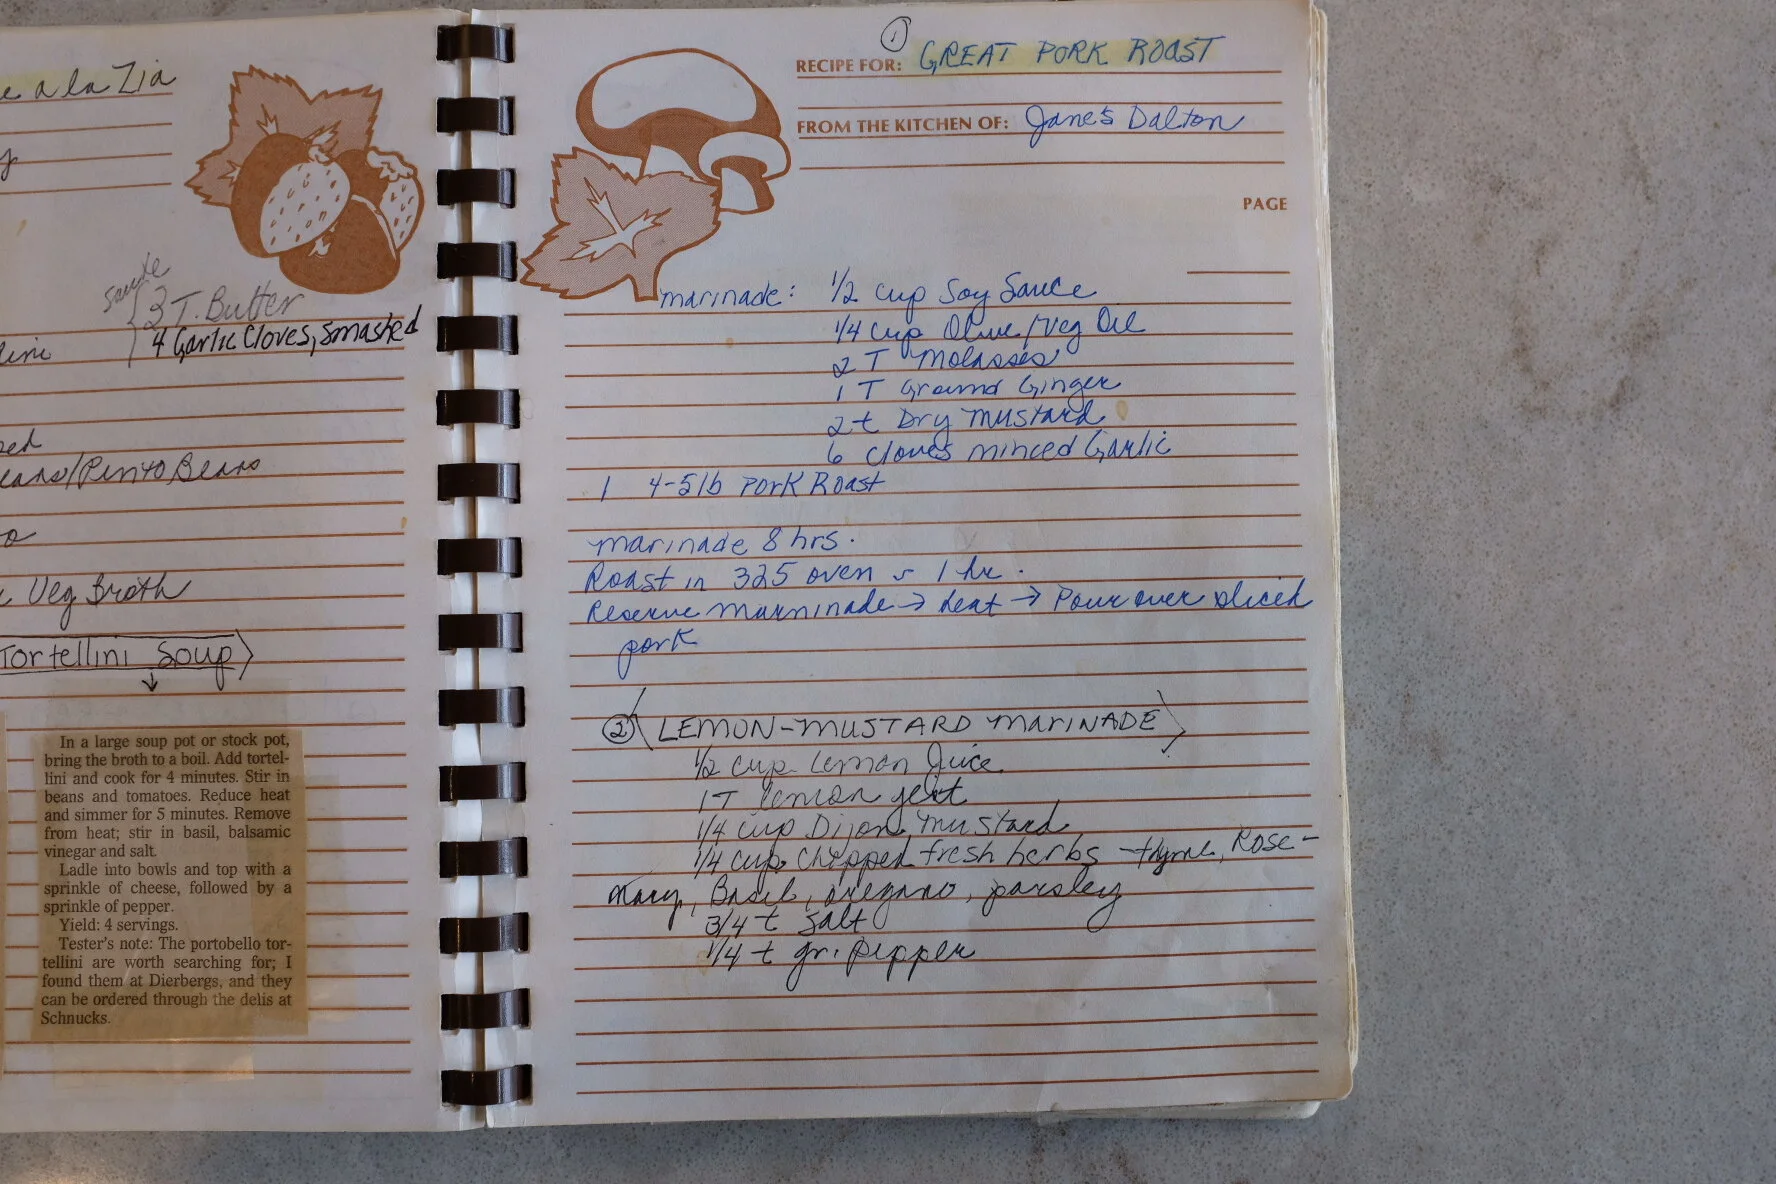 e a la Zia
saute
3 T. Butter
4 Garlic Cloves, smashed
lini
ped
eans/Pinto Beans
Veg Broth
Tortellini Soup
In a large soup pot or stock pot,
bring the broth to a boil. Add tortel-
lini and cook for 4 minutes. Stir in
beans and tomatoes. Reduce heat
and simmer for 5 minutes. Remove
from heat; stir in basil, balsamic
vinegar and salt.
Ladle into bowls and top with a
sprinkle of cheese, followed by a
sprinkle of pepper.
Yield: 4 servings.
Tester's note: The portobello tor-
tellini are worth searching for; I
found them at Dierbergs, and they
can be ordered through the delis at
Schnucks.
1
RECIPE FOR: GREAT PORK ROAST
FROM THE KITCHEN OF: Jane's Dalton
PAGE
marinade: 1/2 cup Soy Sauce
1/4 cup Olive/Veg Oil
2 T Molasses
1 T Ground Ginger
2 t Dry Mustard
6 cloves minced Garlic
1 4-5 lb Pork Roast
marinade 8 hrs.
Roast in 325 oven 1 hr.
Reserve marninade → heat → Pour over sliced
pork
2 LEMON-MUSTARD MARINADE
1/2 cup Lemon Juice
1 T lemon zest
1/4 cup Dijon Mustard
1/4 cup chopped fresh herbs - thyme, Rose-
mary, Basil, oregano, parsley
3/4 t salt
1/4 t gr. pepper